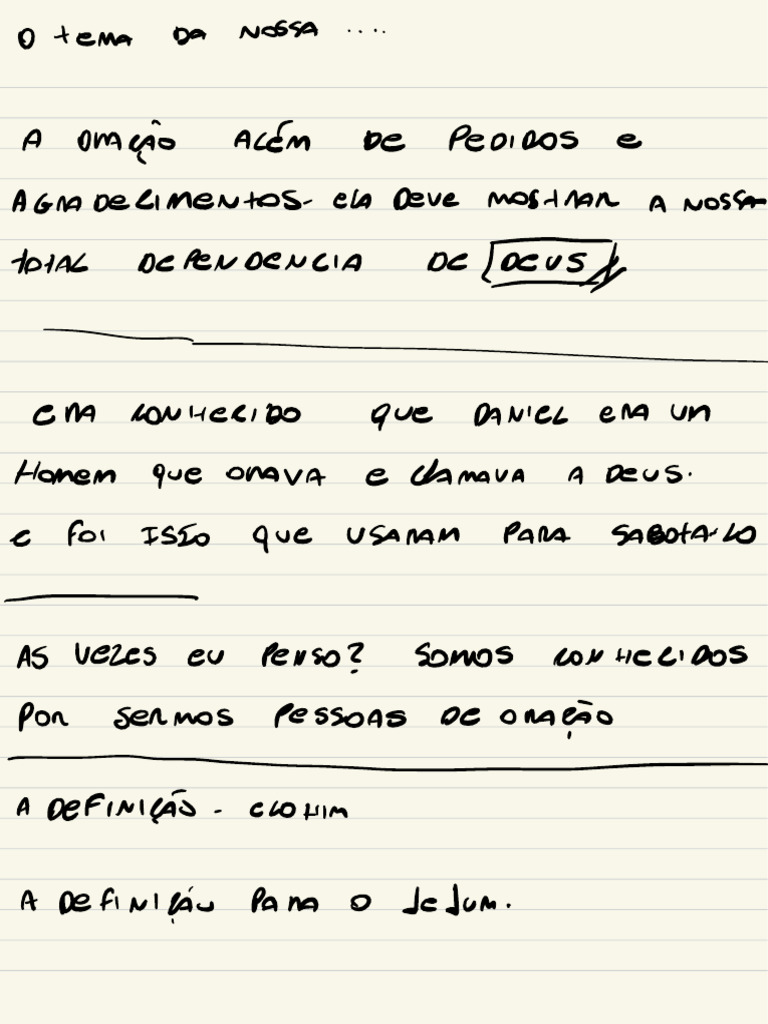 O tema DA NOSSA ....
A ORAÇÃO ALÉM DE PEDIDOS e
AGRADECIMENTOS- ELA DEVE MOSTRAR A NOSSA
TOTAL DEPENDENCIA DE DEUS
ERA CONHECIDO QUE DANIEL ERA UM
Homem que ORAVA e CLAMAVA A DEUS.
E FOI ISSO QUE USARAM PARA SABOTA-LO
AS VEZES EU PENSO? SOMOS CONHECIDOS
POR SERMOS PESSOAS DE ORAÇÃO
A DEFINIÇÃO - ELOHIM
A DEFINIÇÃO PARA O JEJUM.